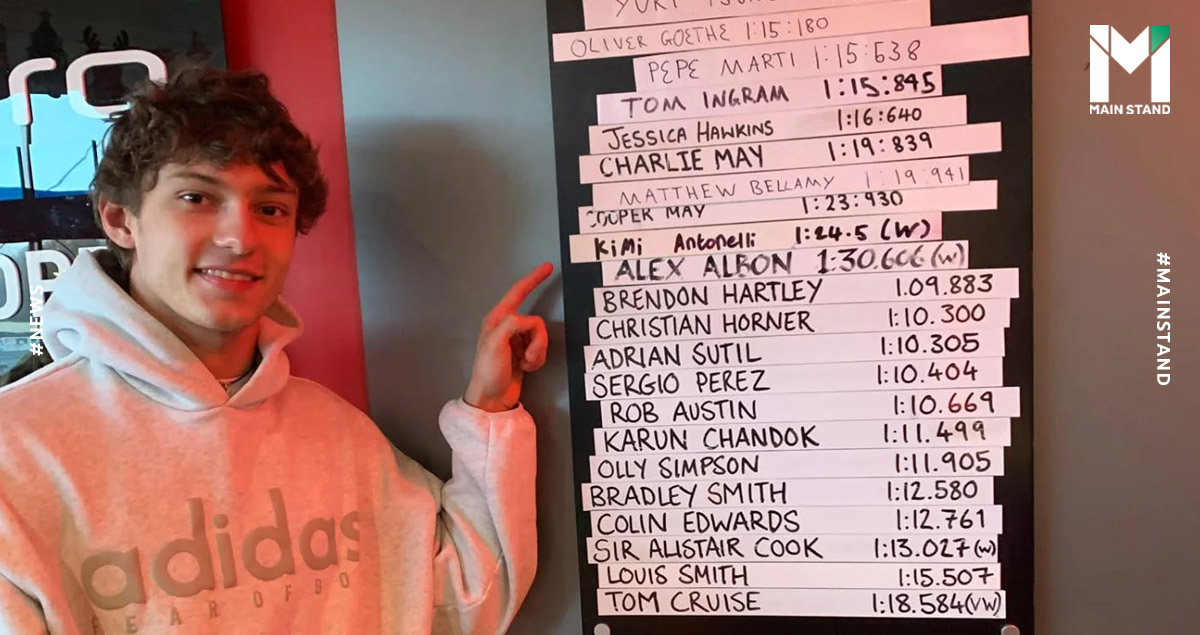 YUKI TSUNO
OLIVER GOETHE 1:15:180
PEPE MARTI 1:15:538
TOM INGRAM 1:15:845
JESSICA HAWKINS 1:16:640
CHARLIE MAY 1:19:839
MATTHEW BELLAMY 1:19:941
COOPER MAY 1:23:930
KiMi Antonelli 1:24.5 (W)
ALEX ALBON 1:30.606 (W)
BRENDON HARTLEY 1.09.883
CHRISTIAN HORNER 1:10.300
ADRIAN SUTIL 1:10.305
SERGIO PEREZ 1:10.404
ROB AUSTIN 1:10.669
KARUN CHANDOK 1:11.499
OLLY SIMPSON 1:11.905
BRADLEY SMITH 1:12.580
COLIN EDWARDS 1:12.761
SIR ALISTAIR COOK 1:13.027 (W)
LOUIS SMITH 1:15.507
TOM CRUISE 1:18.584 (VW)
adidas
FEAR OF GO
MAIN STAND
#MAINSTAND
#NEWS